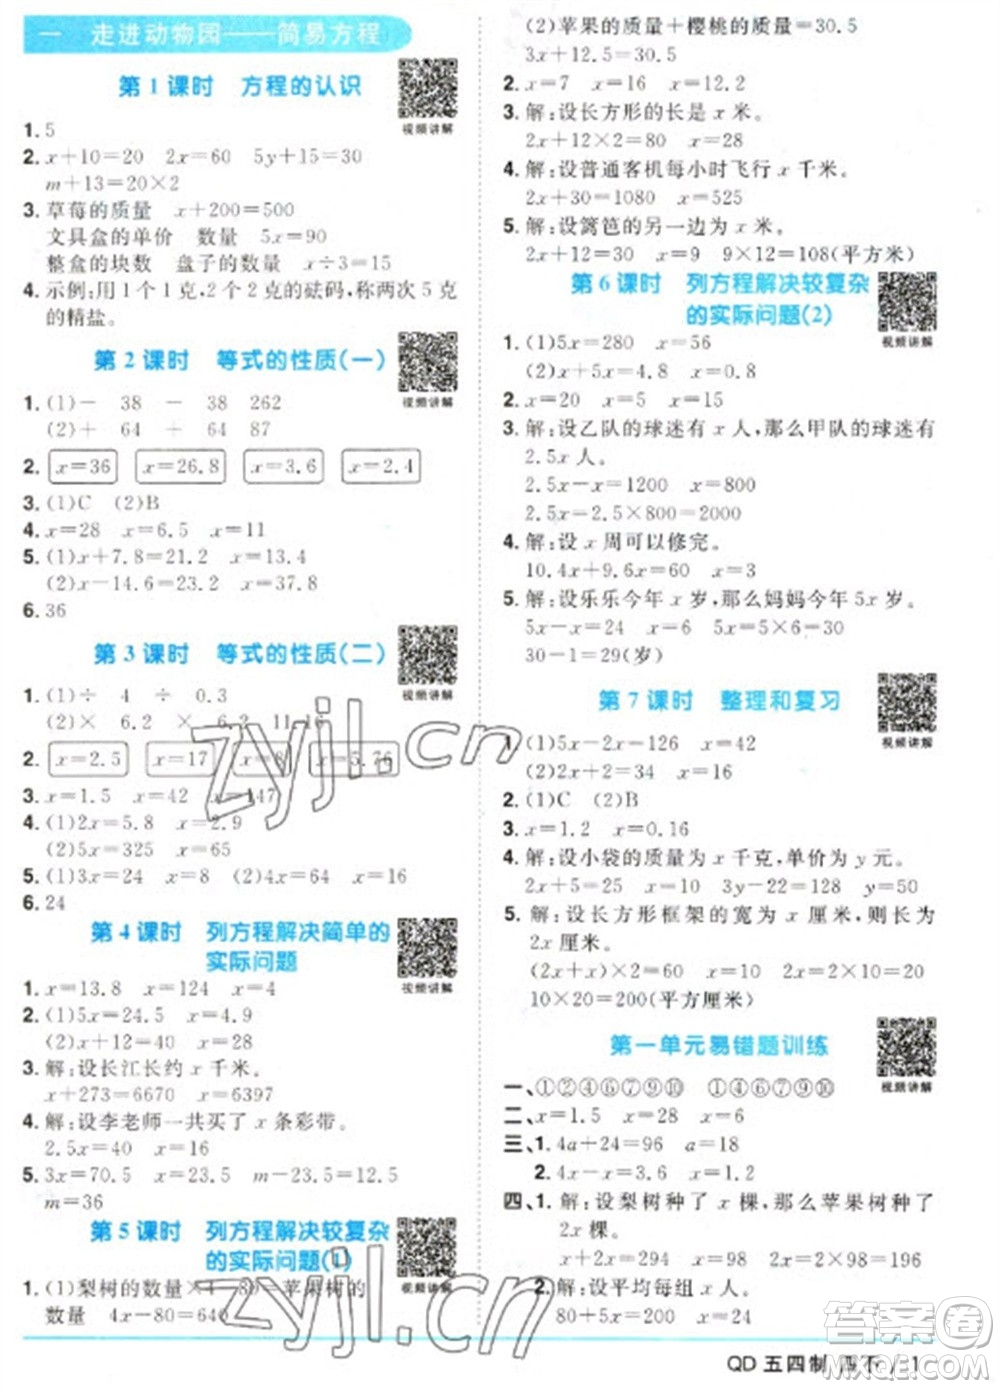 一 走进动物园——简易方程
第1课时 方程的认识
视频讲解
1. 5
2. x+10=20 2x=60 5y+15=30
m+13=20×2
3. 草莓的质量 x+200=500
文具盒的单价 数量 5x=90
整盒的块数 盘子的数量 x÷3=15
4. 示例:用1个1克,2个2克的砝码,称两次5克
的精盐。
第2课时 等式的性质(一)
视频讲解
1. (1)− 38 − 38 262
(2)+ 64 + 64 87
2. x=36 x=26.8 x=3.6 x=2.4
3. (1)C (2)B
4. x=28 x=6.5 x=11
5. (1)x+7.8=21.2 x=13.4
(2)x−14.6=23.2 x=37.8
6. 36
第3课时 等式的性质(二)
视频讲解
1. (1)÷ 4 ÷ 0.3
(2)× 6.2 × 6.2 11.16
2. x=2.5 x=17 x=3.76
3. x=1.5 x=42 x=147
4. (1)2x=5.8 x=2.9
(2)5x=325 x=65
5. (1)3x=24 x=8 (2)4x=64 x=16
6. 24
第4课时 列方程解决简单的
实际问题
视频讲解
1. x=13.8 x=24 x=14
2. (1)5x=24.5 x=4.9
(2)x+12=40 x=28
3. 解:设长江长约x千米。
x+273=6670 x=6397
4. 解:设李老师一共买了x条彩带。
2.5x=40 x=16
5. 3x=75 x=25 m−23.5=12.5
m=36
第5课时 列方程解决较复杂
的实际问题(1)
视频讲解
1. (1)梨树的数量×4−80=苹果树的
数量 4x−80=640
(2)苹果的质量+樱桃的质量=30.5
3x+12.5=30.5
2. x=7 x=12 x=8
3. 解:设长方形的长是x米。
2x+12×2=80 x=28
4. 解:设普通客机每小时飞行x千米。
2x+30=1080 x=525
5. 解:设篱笆的另一边为x米。
2x+12=30 x=9 9×12=108(平方米)
第6课时 列方程解决较复杂
的实际问题(2)
视频讲解
1. (1)5x=280 x=56
(2)x+5x=4.8 x=0.8
2. x=20 x=5 x=15
3. 解:设乙队的球迷有x人,那么甲队的球迷有
2.5x人。
2.5x−x=1200 x=800
2.5x=2.5×800=2000
4. 解:设x周可以修完。
10.4x+9.6x=60 x=3
5. 解:设乐乐今年x岁,那么妈妈今年5x岁。
5x+x=36 x=6 5x=5×6=30
30−1=29(岁)
第7课时 整理和复习
视频讲解
1. (1)5x−2x=126 x=42
(2)2x+2=11 x=4.5
2. (1)C (2)B
3. x=1.2 x=0.16
4. 解:设小袋的质量为x千克,单价为y元。
2x+2=10 x=4 3y−22=128 y=50
5. 解:设长方形框架的宽为x厘米,则长为
2x厘米。
(2x+x)×2=60 x=10 2x=2×10=20
10×20=200(平方厘米)
第一单元易错题训练
视频讲解
一、①②④⑥⑦⑨⑩ ①②④⑦⑨⑩
二、x=1.5 x=28 x=13
三、1. 4a+24=96 a=18
2. 4x−x=1.35 x=0.45
四、1. 解:设梨树种了x棵,那么苹果树种了
2x棵。
x+2x=294 x=98 2x=2×98=196
2. 解:设平均每组x人。
80+5x=200 x=24
QD 五四制 四下 / 1
zyjl.cn
zyjl.cn
答案圈
MXQE.COM